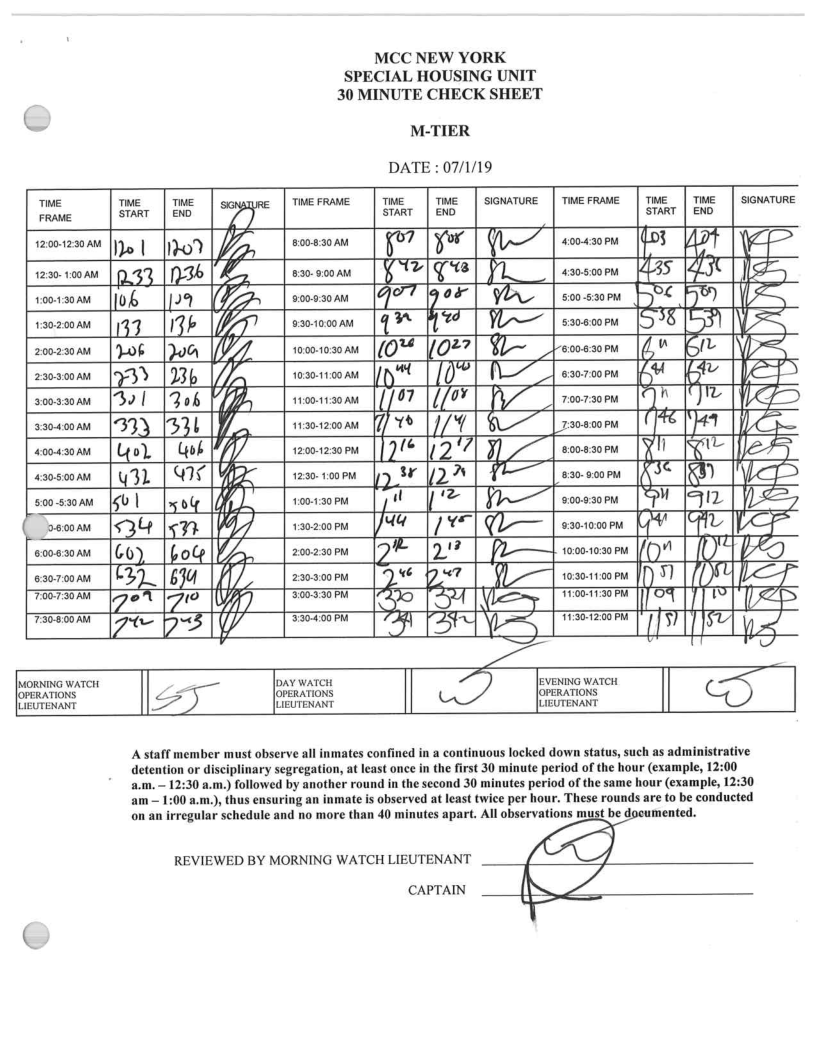 MCC NEW YORK
SPECIAL HOUSING UNIT
30 MINUTE CHECK SHEET
M-TIER
DATE : 07/1/19
TIME FRAME TIME START TIME END SIGNATURE TIME FRAME TIME START TIME END SIGNATURE TIME FRAME TIME START TIME END SIGNATURE
12:00-12:30 AM 1201 1207 8:00-8:30 AM 807 808 4:00-4:30 PM 403 404
12:30- 1:00 AM 1233 1236 8:30- 9:00 AM 842 843 4:30-5:00 PM 435 436
1:00-1:30 AM 106 109 9:00-9:30 AM 907 908 5:00 -5:30 PM 506 507
1:30-2:00 AM 133 136 9:30-10:00 AM 939 940 5:30-6:00 PM 538 539
2:00-2:30 AM 206 209 10:00-10:30 AM 1026 1027 6:00-6:30 PM 611 612
2:30-3:00 AM 233 236 10:30-11:00 AM 1044 6:30-7:00 PM 641 642
3:00-3:30 AM 301 306 11:00-11:30 AM 1107 1108 7:00-7:30 PM 711 712
3:30-4:00 AM 333 336 11:30-12:00 AM 1140 1141 7:30-8:00 PM 746 749
4:00-4:30 AM 402 406 12:00-12:30 PM 1216 1217 8:00-8:30 PM 811 812
4:30-5:00 AM 432 435 12:30- 1:00 PM 1238 1239 8:30- 9:00 PM 836 837
5:00 -5:30 AM 501 504 1:00-1:30 PM 111 112 9:00-9:30 PM 911 912
0-6:00 AM 534 537 1:30-2:00 PM 144 145 9:30-10:00 PM 941 942
6:00-6:30 AM 602 604 2:00-2:30 PM 212 213 10:00-10:30 PM 1011 1012
6:30-7:00 AM 632 634 2:30-3:00 PM 246 247 10:30-11:00 PM 1051 1052
7:00-7:30 AM 709 710 3:00-3:30 PM 320 321 11:00-11:30 PM 1109 1110
7:30-8:00 AM 742 743 3:30-4:00 PM 341 342 11:30-12:00 PM 1151 1152
MORNING WATCH OPERATIONS LIEUTENANT DAY WATCH OPERATIONS LIEUTENANT EVENING WATCH OPERATIONS LIEUTENANT
A staff member must observe all inmates confined in a continuous locked down status, such as administrative
detention or disciplinary segregation, at least once in the first 30 minute period of the hour (example, 12:00
a.m. – 12:30 a.m.) followed by another round in the second 30 minutes period of the same hour (example, 12:30
am – 1:00 a.m.), thus ensuring an inmate is observed at least twice per hour. These rounds are to be conducted
on an irregular schedule and no more than 40 minutes apart. All observations must be documented.
REVIEWED BY MORNING WATCH LIEUTENANT
CAPTAIN